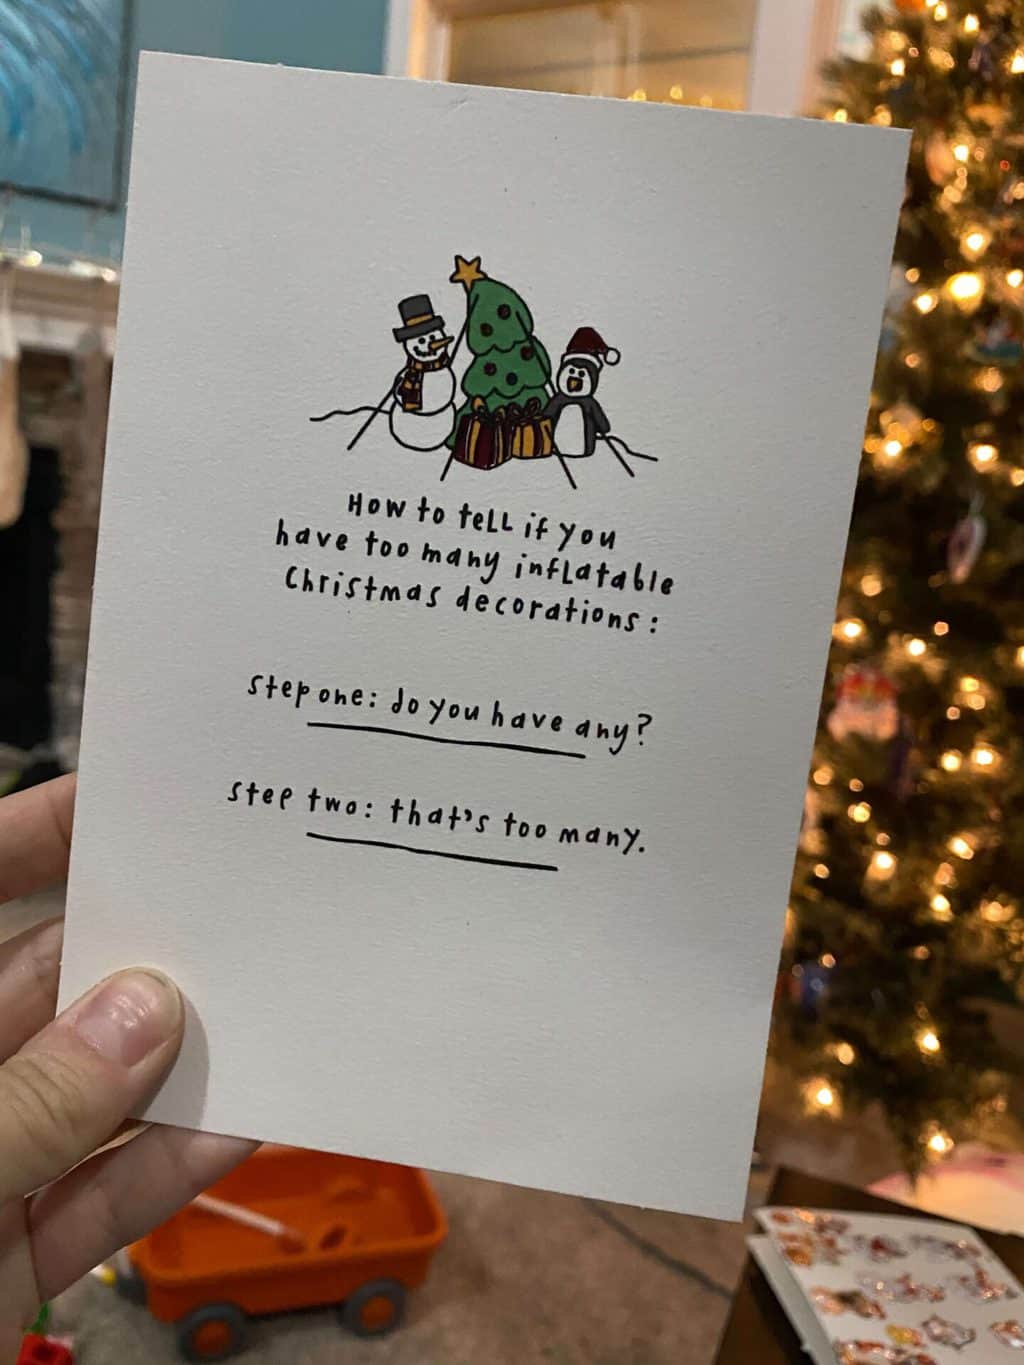 How to tell if you
have too many inflatable
Christmas decorations:
step one: do you have any?
step two: that's too many.